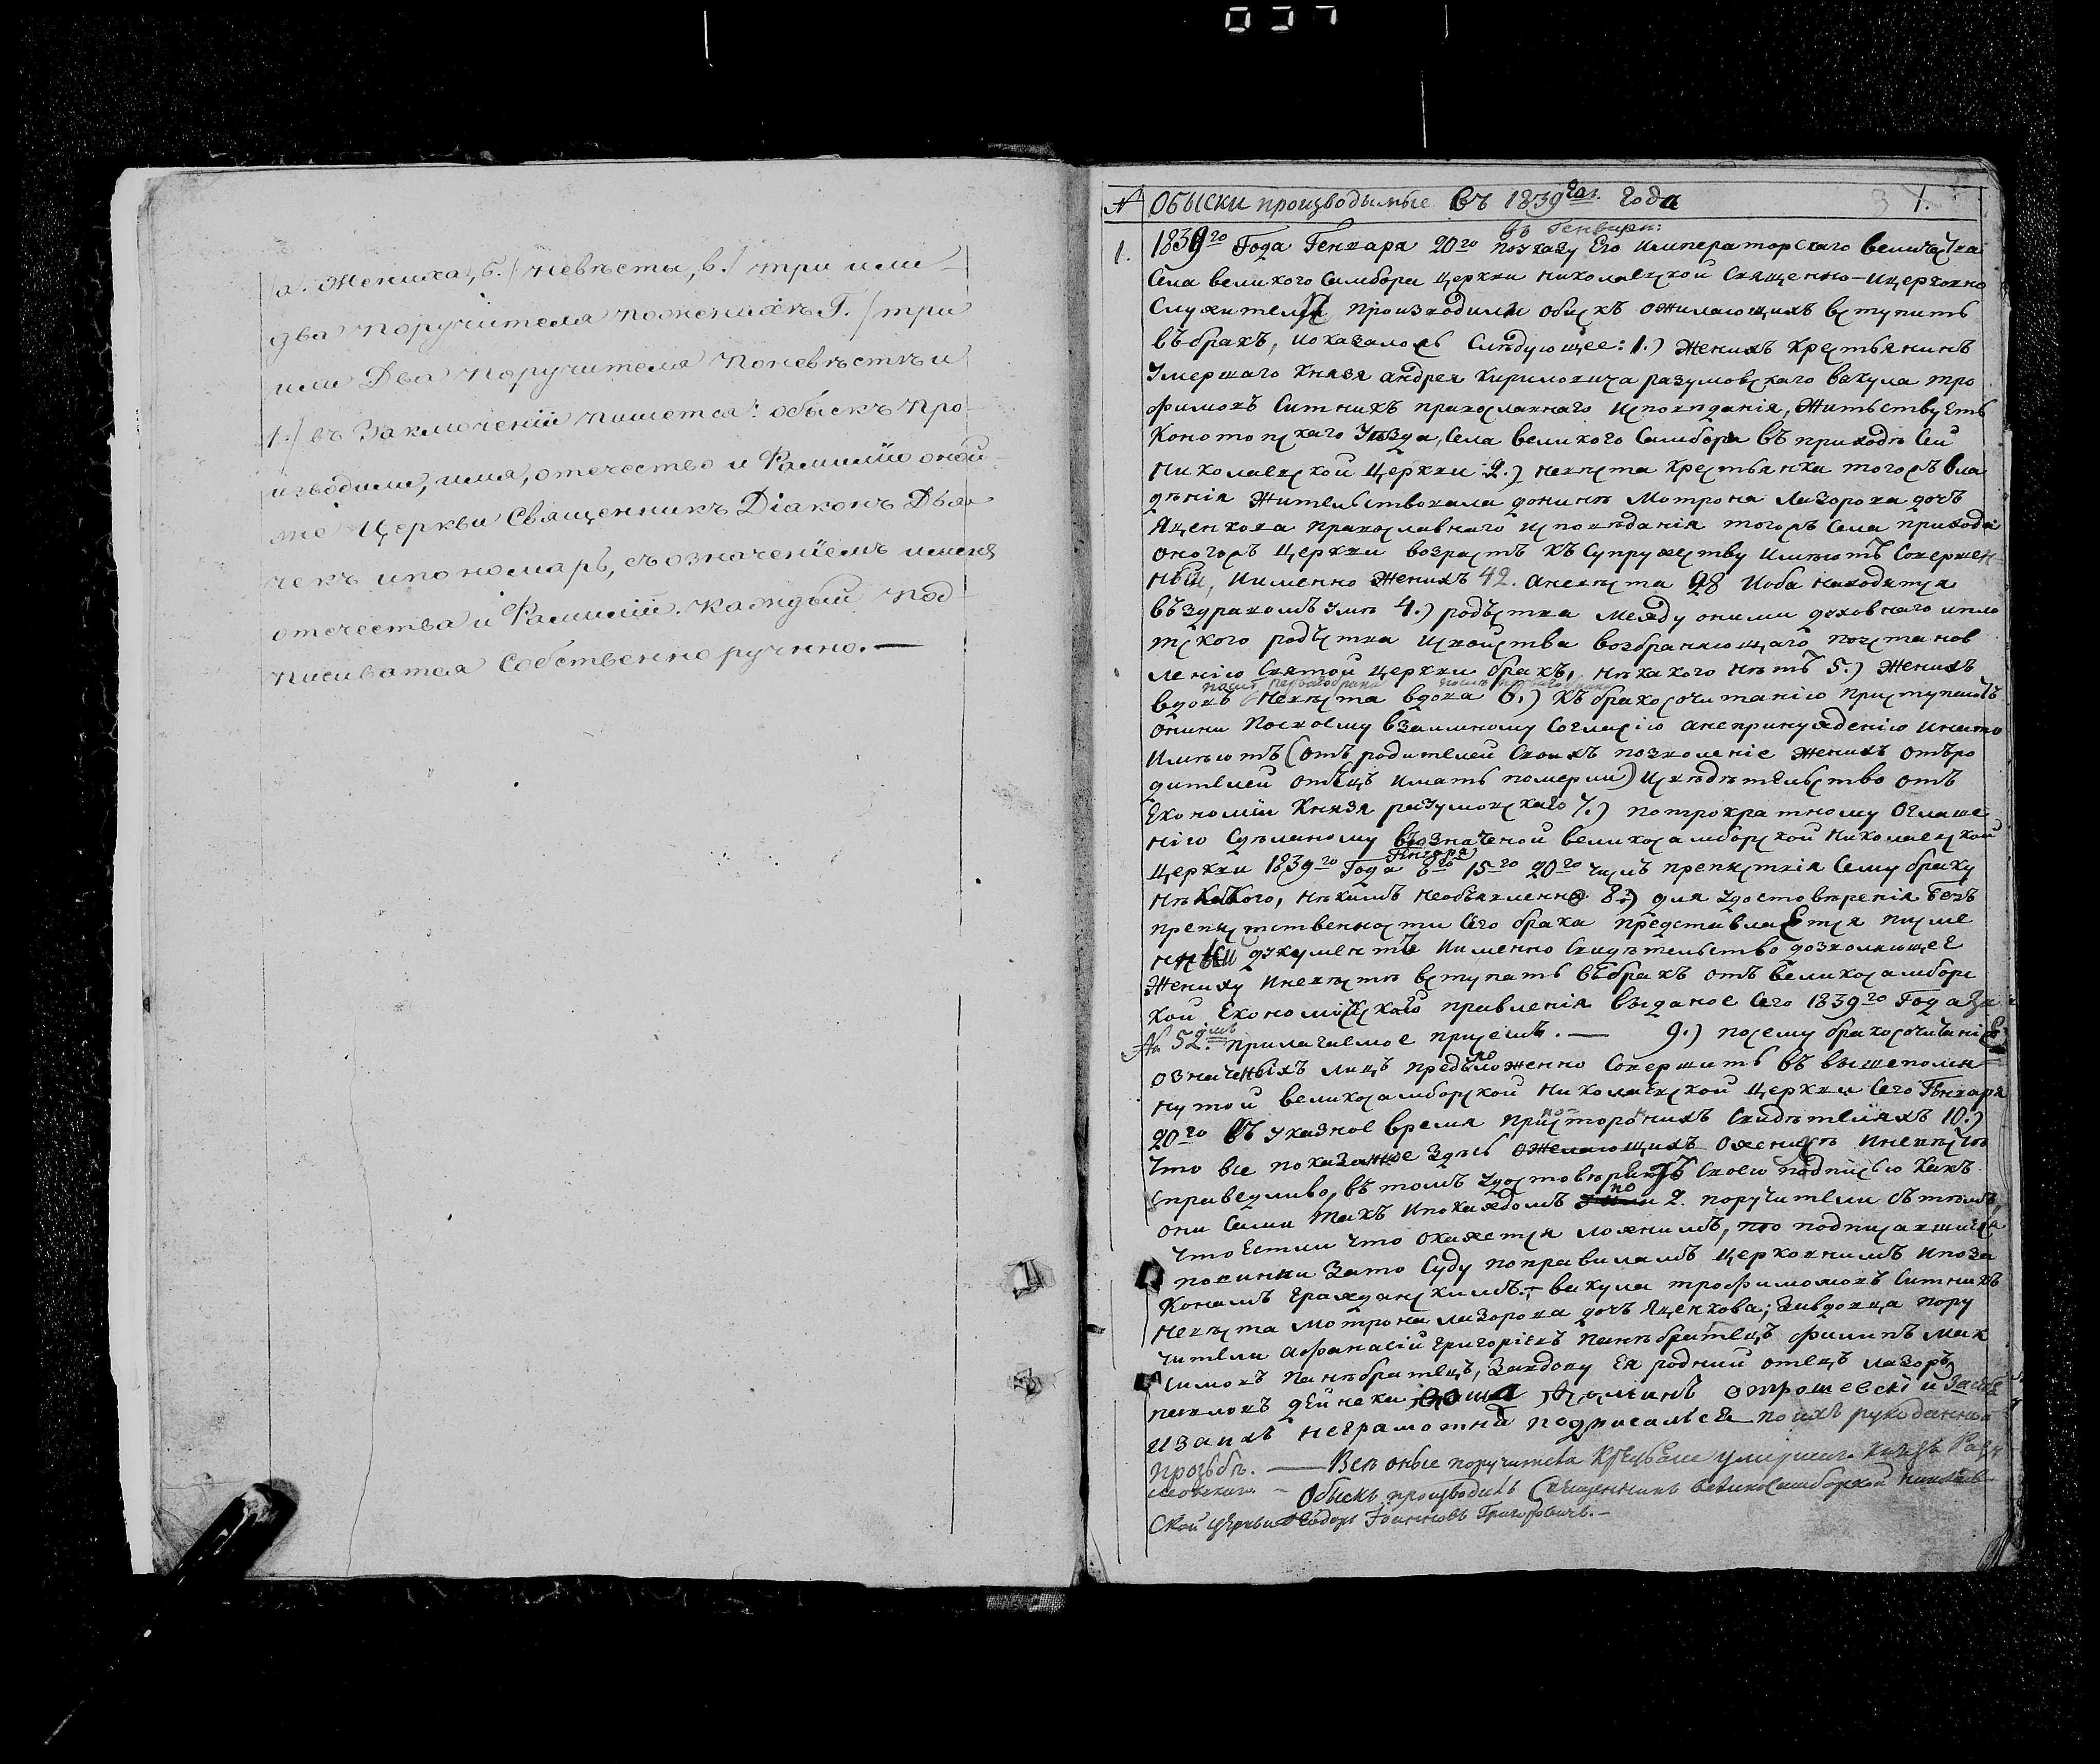 037
/а. Жениха, б./ невѣсты, в./ три или
два поручителя пожениху Г./ три
или Два поручителя поневѣстѣ и
1./ въ Заключеніи пишется: обыскъ про-
изводили, имя, отечество и Фамилію оной-
же Церкви Священникъ Діаконъ Дья-
чекъ ипономарь, съозначеніемъ имени
отечества и Фамиліи. каждый под-
писиватся Собственноручно.—
№ Обыски производимые въ 1839 год. года 1.
въ Генвари:
1. 1839го Года Генваря 20го поуказу Его Императорскаго величества
Села великого Самбора церкви николаевской Священно-Ицерковно
Служители производили обискъ ожилающихъ вступить
въбракъ, иоказалось Слѣдующее: 1.) Женихъ крестьянинъ
Умершаго Князя андрея кириловича разумовскаго вакула тро
фимовъ Ситникъ православнаго исповѣданія, Жительствуетъ
Конотопскаго Уѣзда, Села великого Самбора въприходѣ Сей
николаевской Церкви 2.) невѣста крестьянка тогожъ вла
дѣнія Жительствовала донинѣ Мотрона Лазорова дочъ
Яценкова православнаго исповѣданія тогожъ Села прихода
оногожъ церкви возрастъ къ Супружеству имѣютъ Совершен
ный, Иименно Женихъ 42. аневѣста 28 Иоба находятся
въздравомъ умѣ 4.) родъства между оними духовнаго ипло
тского родъства исвойства возбраняющаго поустанов
ленію Святой церкви бракъ, нѣкакого нѣтъ 5.) Женихъ
послѣ первагобрака послѣ перваго брака
вдовъ Невѣста вдова 6.) къ бракосочитанію приступаютъ
онини Посвоему взаимному Согласію анепринужденію инато
Имѣютъ (отъ родителей Своихъ позволеніе Женихъ отъро
дителей отецъ имать померли) Исвѣдѣтельство отъ
Економіи Князя разумовскаго 7.) потрократному Оглаше
нію Сдѣланому въозначеной великосамборской Николаевской
Генваря
Церкви 1839го Года 6го 15го 20го числъ препятствія Сему браку
нѣкакого, нѣкимъ необъявленно 8.) для удостовѣренія безъ
препятственности Сего брака представлается писме
нный документъ Иименно Свидѣтельство дозволяющее
Жениху иневѣстѣ вступать въбракъ отъ великосамборс
кой Економическаго правленія выданое Сего 1839го Года за
№ 52мъ прилагаемое присемъ.— 9.) посему бракосочитаніе
означеныхъ лицъ предположенно Совершить въ вышепомя
нутой великосамборской николаевской церкви Сего Генваря
20го въ указное время припостороннихъ Свидѣтеляхъ 10.)
Что все показанное Здѣсь ожелающихъ Оженихѣ иневѣстѣ
Справедливо, въ томъ удостовѣряютъ Своею подписью какъ
они Сами такъ ипокаждомъ по 2. поручители сътѣмъ,
что Естли что окажется ложнимъ, то подписавшиеся
повинни Зато Суду поправиламъ церковнимъ Ипоза
конамъ гражданскимъ.— вакула трофимовъ Ситникъ
невѣста мотрона лазорова дочъ Яценкова; Завдовца пору
чители афанасій григоріевъ панѣбратецъ филипъ мак
симовъ Панѣбратецъ, Завдову Ея родний отецъ лазорь
павловъ дейнека отрошевскій и Засебе
изанихъ неграмотній подписался поихъ рукоданной
прозьбѣ. — Всѣ оные поручители умершаго князя Разу
мовскаго.— Обыскъ производилъ Священникъ великосамборской николаев
ской церкви Феодоръ Іоанновъ Григоровичъ.—